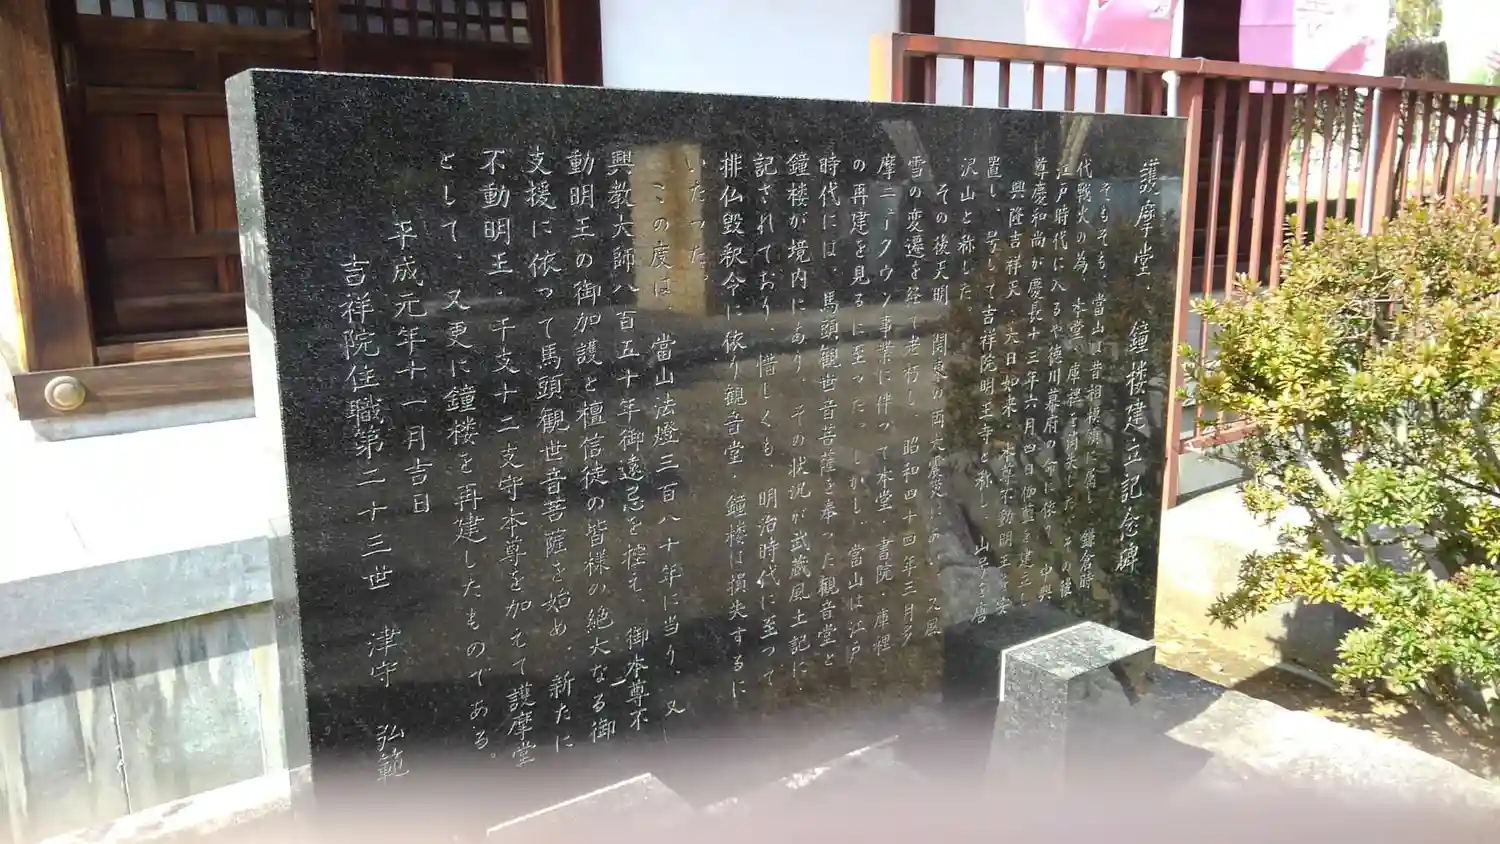 護摩堂・鐘楼建立記念碑
そもそも、當山は昔相模領に属し、鎌倉時
代戦火の為、本堂、庫裡を消失した。その後
江戸時代に入るや徳川幕府の命に依り、中興
尊慶和尚が慶長十三年六月四日伽藍を建立し
興隆吉祥天、大日如来、本尊不動明王を安
置し、号して吉祥院明王寺と称し、山号を唐
沢山と称した。
その後天明、関東の両大震災にあい、又風
雪の変遷を経て老朽し、昭和四十四年三月多
摩ニュータウン事業に伴って本堂、書院、庫裡
の再建を見るに至った。しかし、當山は江戸
時代には、馬頭観世音菩薩を奉った観音堂と
鐘楼が境内にあり、その状況が武蔵風土記に
記されており、惜しくも、明治時代に至って
排仏毀釈令に依り観音堂・鐘楼は損失するに
いたった。
この度は、當山法燈三百八十年に当り、又
興教大師八百五十年御遠忌を控え、御本尊不
動明王の御加護と檀信徒の皆様の絶大なる御
支援に依って馬頭観世音菩薩を始め、新たに
不動明王・干支十二支守本尊を加えて護摩堂
として、又更に鐘楼を再建したものである。
平成元年十一月吉日
吉祥院住職第二十三世 津守 弘範